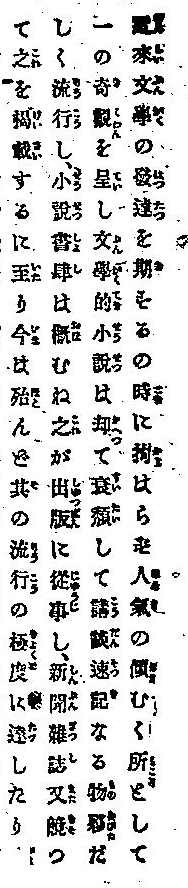 近來文學の發達を期するの時に拘はらず人氣の傾むく所として
一の奇觀を呈し文學的小說は却て衰頽して講談速記なる物夥だ
しく流行し、小說書肆は概むね之が出版に從事し、新聞雜誌又競つ
て之を揭載するに至り今は殆んど其の流行の極度に達したり、